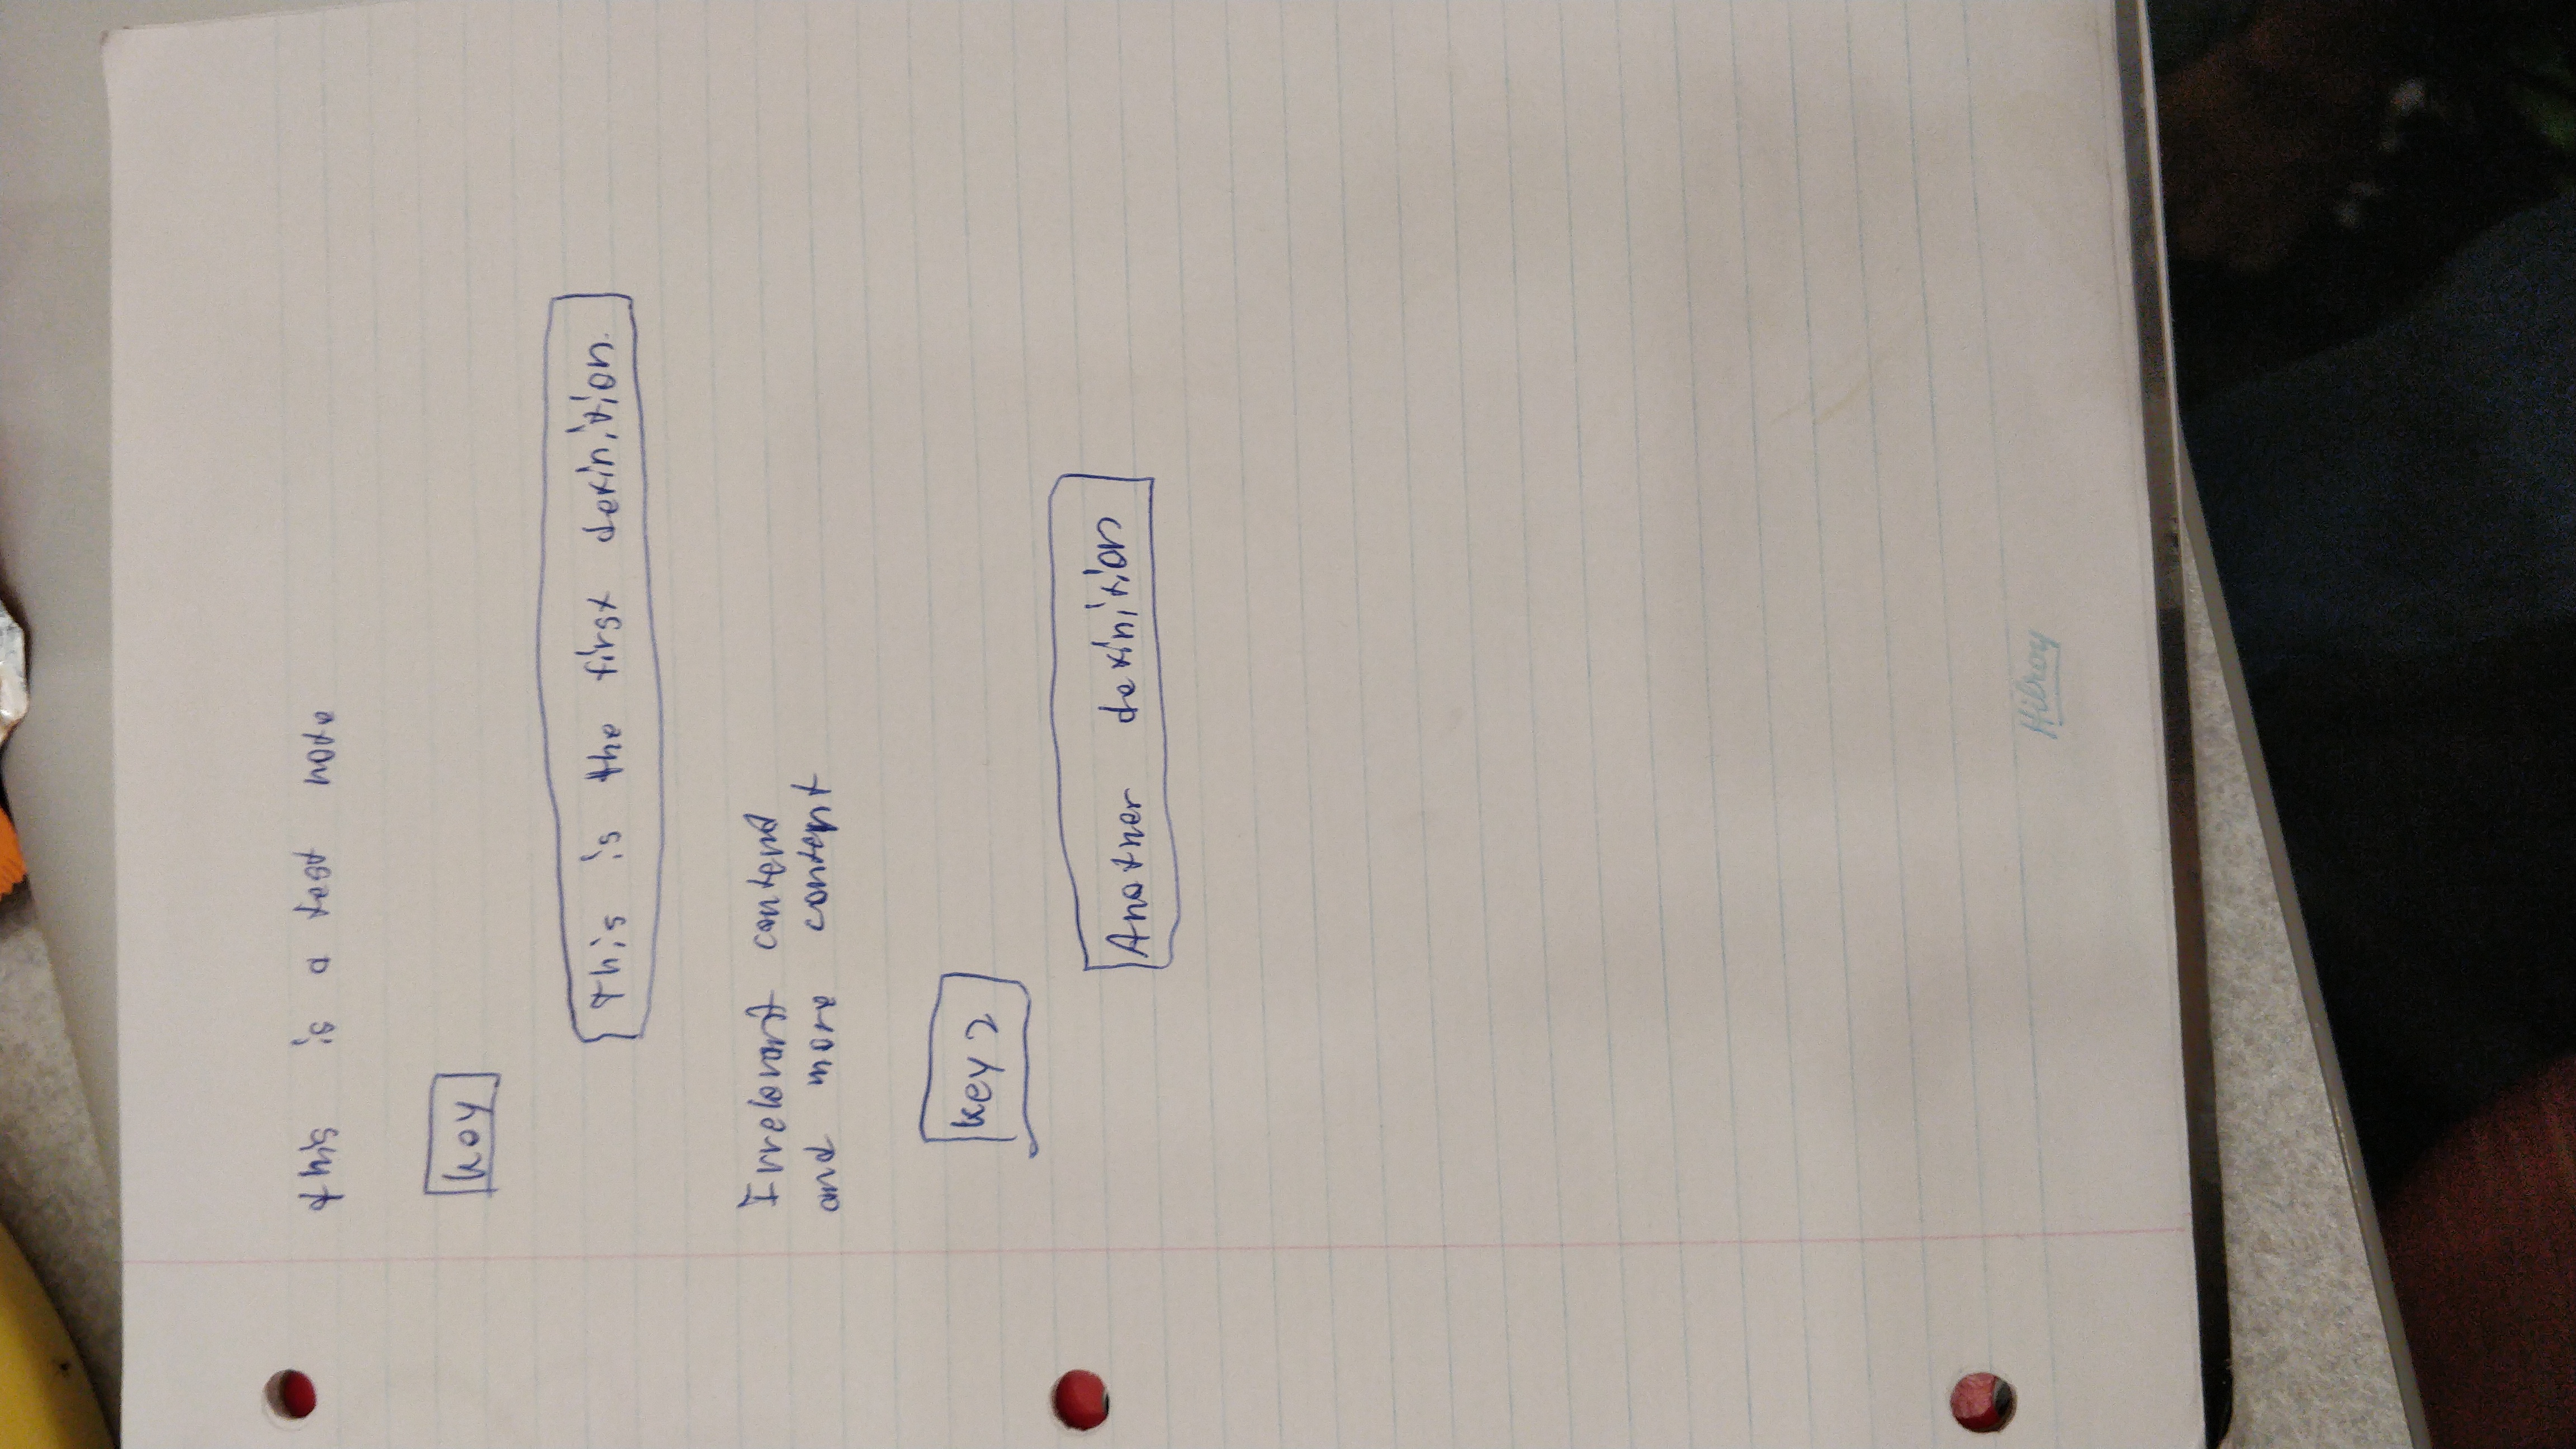 this is a test note
key
This is the first definition.
Irrelevant content
and more content
key 2
Another definition
Hilroy